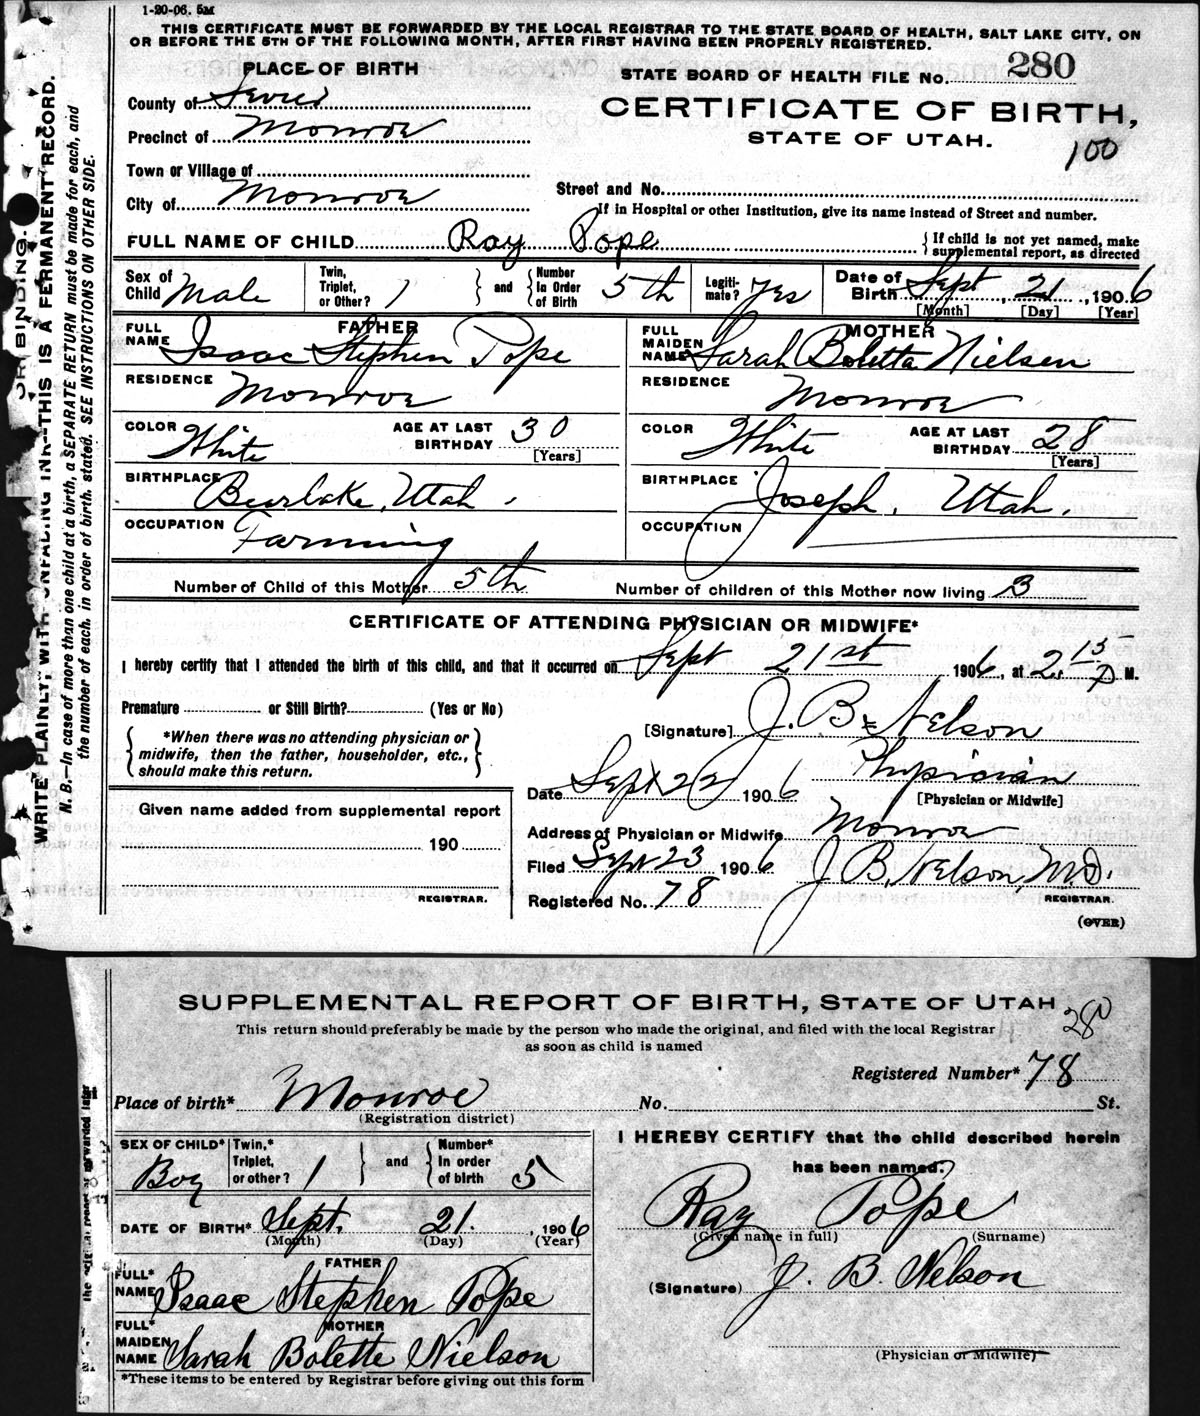 1-20-06. 5M
THIS CERTIFICATE MUST BE FORWARDED BY THE LOCAL REGISTRAR TO THE STATE BOARD OF HEALTH, SALT LAKE CITY, ON
OR BEFORE THE 5TH OF THE FOLLOWING MONTH, AFTER FIRST HAVING BEEN PROPERLY REGISTERED.
PLACE OF BIRTH
STATE BOARD OF HEALTH FILE No. 280
County of Sevier
CERTIFICATE OF BIRTH,
Precinct of Monroe
STATE OF UTAH.
100
Town or Village of
City of Monroe
Street and No.
If in Hospital or other Institution, give its name instead of Street and number.
FULL NAME OF CHILD Ray Pope
If child is not yet named, make
supplemental report, as directed
Sex of Child Male
Twin, Triplet, or Other? 1
and Number In Order of Birth 5th
Legiti-mate? Yes
Date of Birth Sept, 21, 1906
[Month] [Day] [Year]
FATHER
FULL NAME Isaac Stephen Pope
MOTHER
FULL MAIDEN NAME Sarah Boletta Nielsen
RESIDENCE Monroe
RESIDENCE Monroe
COLOR White AGE AT LAST BIRTHDAY 30 [Years]
COLOR White AGE AT LAST BIRTHDAY 28 [Years]
BIRTHPLACE Burlake, Utah.
BIRTHPLACE Joseph, Utah.
OCCUPATION Farming
OCCUPATION
Number of Child of this Mother 5th
Number of children of this Mother now living 3
CERTIFICATE OF ATTENDING PHYSICIAN OR MIDWIFE*
I hereby certify that I attended the birth of this child, and that it occurred on Sept 21st 1906, at 2.15 P M.
Premature or Still Birth? (Yes or No)
[Signature] J. B. Nelson
*When there was no attending physician or
midwife, then the father, householder, etc.,
should make this return.
Physician
Date Sept 22 1906
[Physician or Midwife]
Given name added from supplemental report
190
REGISTRAR.
Address of Physician or Midwife Monroe
Filed Sept 23 1906 J. B. Nelson, M.D.
Registered No. 78
REGISTRAR.
(OVER)
OR BINDING.
WRITE PLAINLY, WITH UNFADING INK—THIS IS A PERMANENT RECORD.
N. B.—In case of more than one child at a birth, a SEPARATE RETURN must be made for each, and
the number of each, in order of birth, stated. SEE INSTRUCTIONS ON OTHER SIDE.
SUPPLEMENTAL REPORT OF BIRTH, STATE OF UTAH
280
This return should preferably be made by the person who made the original, and filed with the local Registrar
as soon as child is named
Registered Number* 78
Place of birth* Monroe
No. St.
(Registration district)
SEX OF CHILD* Boy
Twin,* Triplet, or other? 1
and Number* In order of birth 5
I HEREBY CERTIFY that the child described herein
has been named:
Ray Pope
(Given name in full) (Surname)
DATE OF BIRTH* Sept. 21. 1906
(Month) (Day) (Year)
FATHER
FULL* NAME Isaac Stephen Pope
(Signature) J. B. Nelson
MOTHER
FULL* MAIDEN NAME Sarah Bolette Nielson
(Physician or Midwife)
*These items to be entered by Registrar before giving out this form